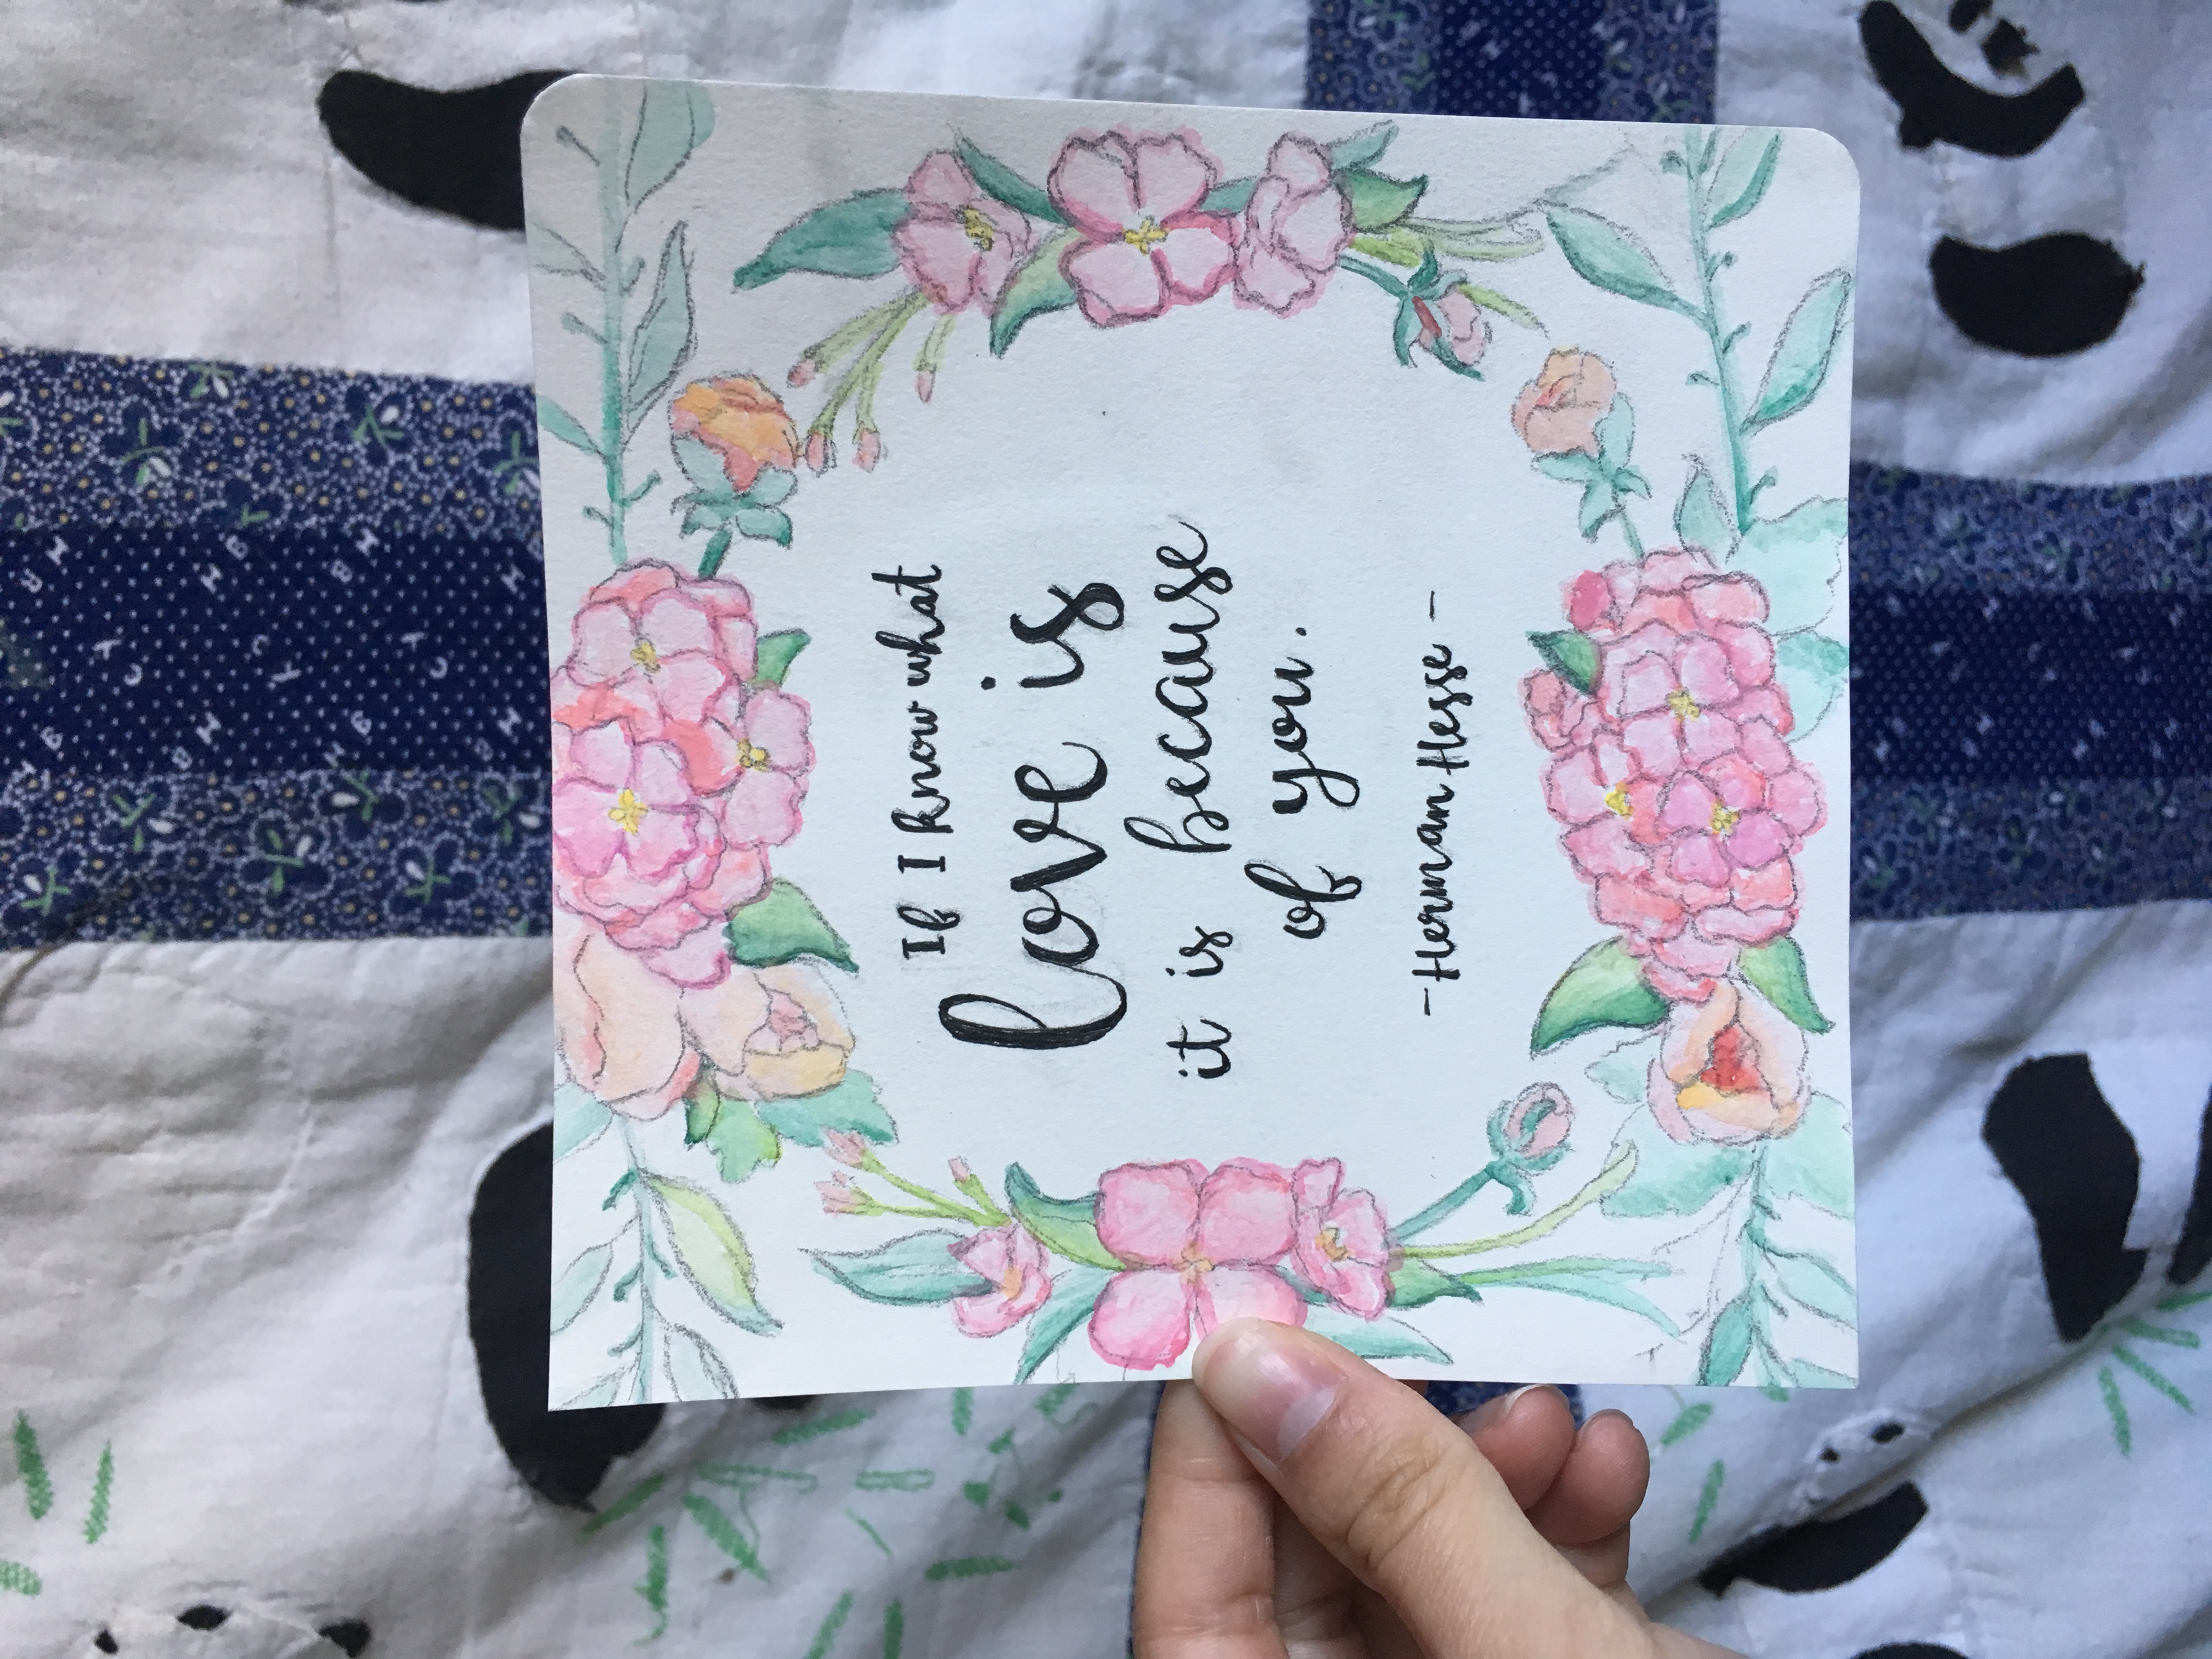 If I know what
love is
it is because
of you.
-Herman Hesse-